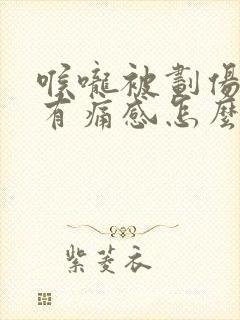 喉嚨被劃傷
有痛感怎麼
紫菱衣